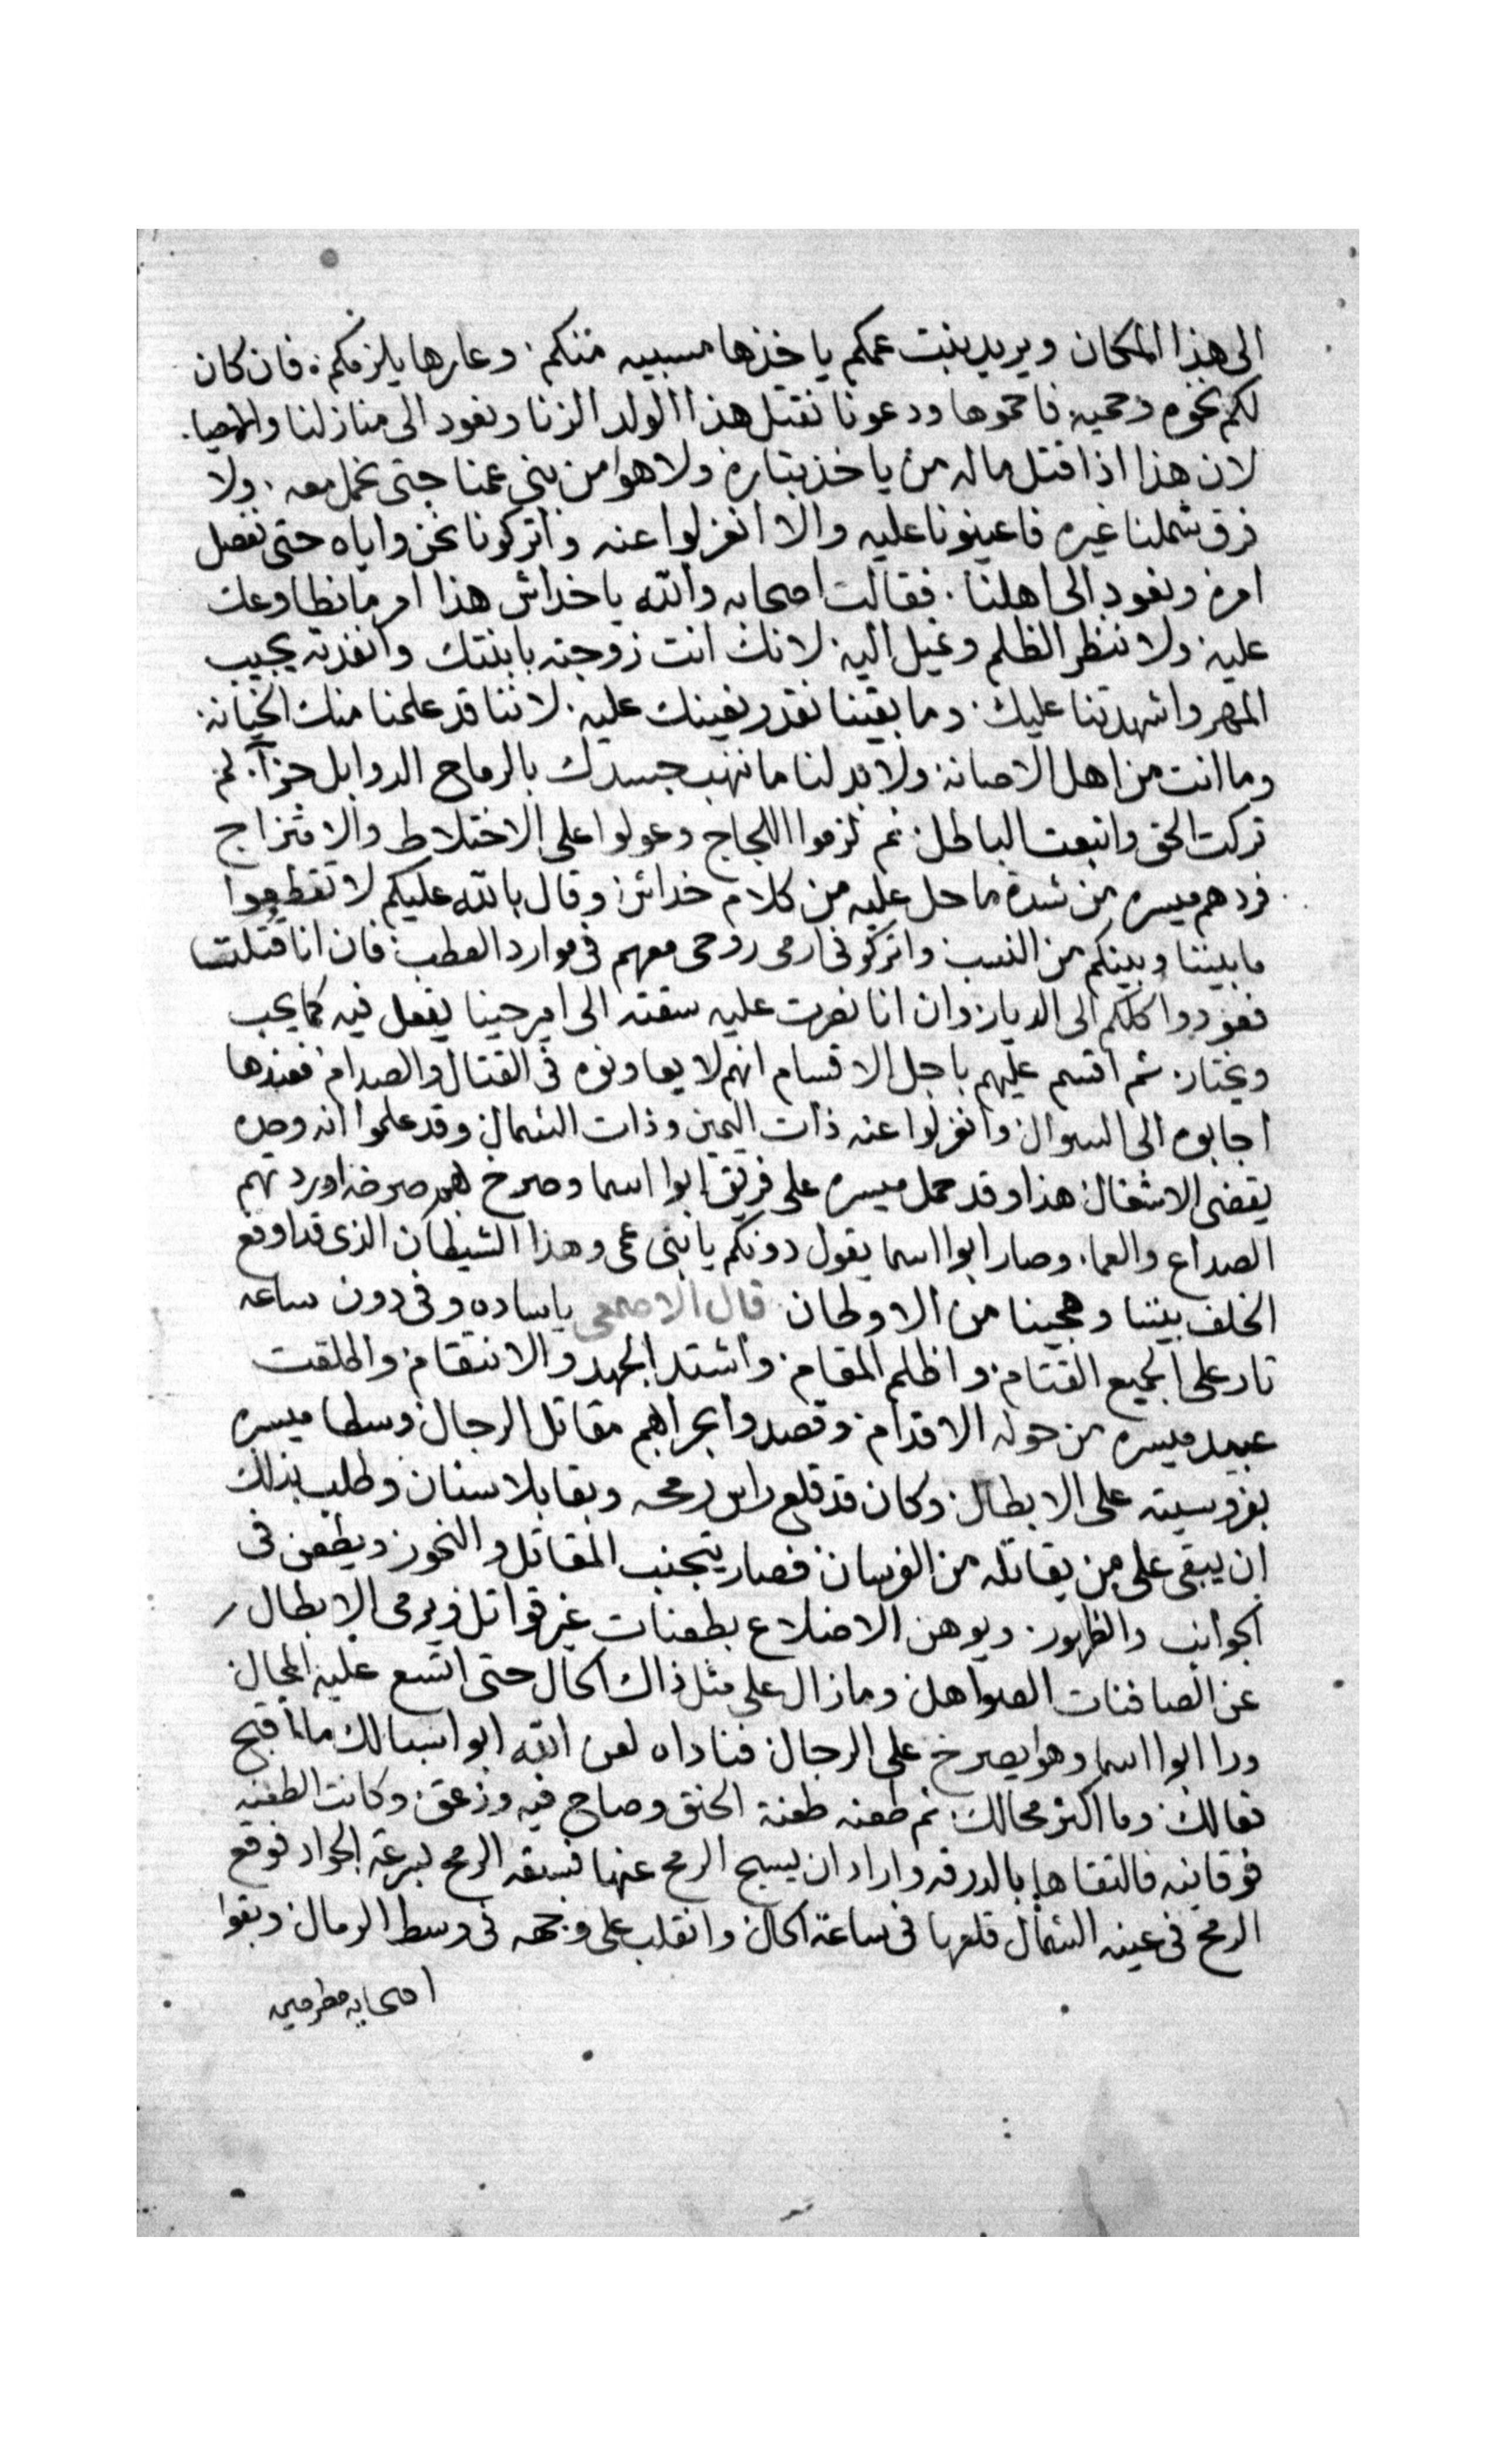 الى هذا المكان ويريد بنت عمكم ياخذها مسبيه منكم. وعارها يلزمكم. فان كان
لكم نخوه وحميه فاحموها ودعونا نقتل هذا الولد الزنا ونعود الى منازلنا
لان هذا اذا قتل ماله من ياخذ بتاره ولا هوا من بني عمنا حتى نحمل معه. ولا
فرق شملنا غيره فاعينونا عليه والا انعزلوا عنه واتركونا نحن واياه حتى نفصل
امره ونعود الى اهلنا. فقالت اصحابه والله ياخداش هذا امر مانطاوعك
عليه ولا ننظر الظلم ونميل اليه. لانك انت زوجته بابنتك وانفذته يجيب
المهر واشهدتنا عليك. وما بقينا نقدر نعينك عليه. لاننا قد علمنا منك الخيانه.
وما انت من اهل الاصانه ولا بد لنا ما ننهب جسدك بالرماح الدوابل جزآ. لم
تركت الحق واتبعت الباطل ثم لزموا اللجاج وعولوا على الاختلاط والامتزاج
فردهم ميسره من شدة ما حل عليه من كلام خداش وقال بالله عليكم لا تقطعوا
ما بيننا وبينكم من النسب واتركوني ارمى روحى معهم فى موارد العطب فان انا قتلت
فعودوا كلكم الى الديار وان انا نصرت عليه سقته الى امير حينا يفعل فيه كما يحب
ويختار. ثم اقسم عليهم باجل الاقسام انهم لا يعاونوه فى القتال والصدام فعندها
اجابوه الى السوال وانعزلوا عنه ذات اليمين وذات الشمال وقد علموا انه وحده
يقضى الاشغال هذا وقد حمل ميسره على فريق ابوا اسما وصرخ بهم صرخه اوردتهم
الصداع والعما. وصار ابوا اسما يقول دونكم يا بنى عمى وهذا الشيطان الذى قد اوقع
الخلف بيننا وهججنا من الاوطان قال الاصمعى ياساده وفى دون ساعه
تار على الجميع القتام واظلم المقام واشتد الجهد والانتقام واطلقت
عبيد ميسره من حوله الاقدام وقصدوا بحرابهم مقاتل الرجال وسطا ميسره
بفروسيته على الابطال وكان قد قلع راس رمحه وبقا بلا سنان وطلب بذلك
ان يبقى على من يقاتله من الفرسان فصار يتجنب المقاتل والنحور ويطعن فى
الجوانب والظهور. ويوهن الاضلاع بطعنات غير قواتل ويرمى الابطال
عن الصافنات الصواهل وما زال على مثل ذاك الحال حتى اتسع عليه المجال
ورا ابوا اسما وهوا يصرخ على الرجال فناداه لعن الله ابوا سبالك ما اقبح
فعالك وما اكثر محالك ثم طعنه طعنة الحنق وصاح فيه وزعق وكانت الطعنه
فوقانيه فالتقاها بالدرقه واراد ان يسيح الرمح عنها فسبقه الرمح لسرعة الجواد فوقع
الرمح فى عينه الشمال قلعها فى ساعة الحال وانقلب على وجهه فى وسط الرمال وبقوا
اصحابه مطرحين